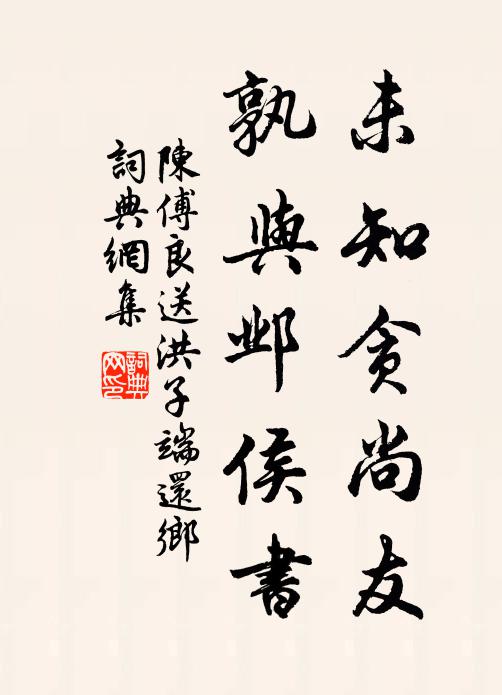 未知貪尚友
孰與邺侯書
陳傅良送洪子端還鄉
詞典網集
詞典网印